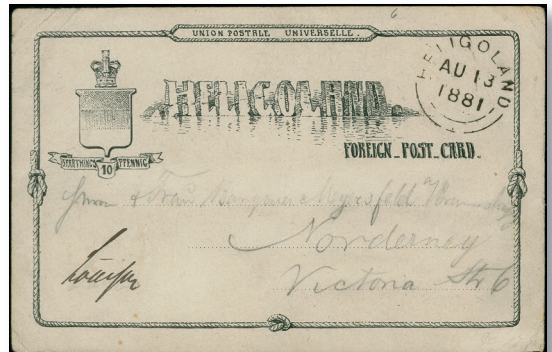 6
UNION POSTALE UNIVERSELLE.
HELIGOLAND
AU 13
1881
HELIGOLAND
FOREIGN_POST_CARD_
5 FARTHINGS 10 PFENNIG
Herrn & Frau
Norderney
Victoria Str 6